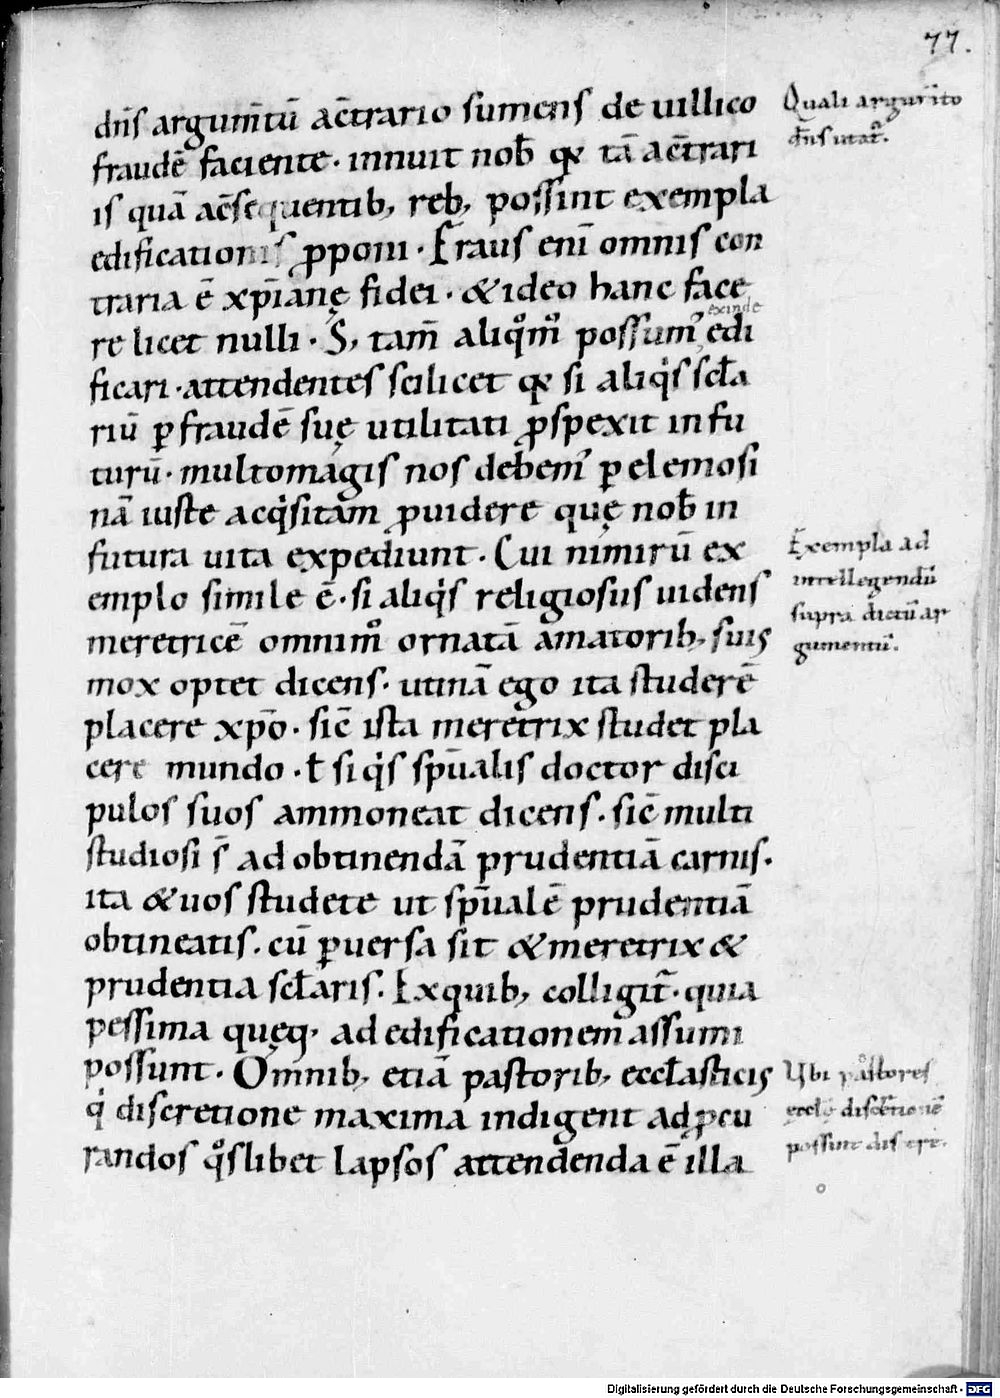 77.
dñs argum̄tū ac̄trario sumens de uillico
fraudē faciente · innuit nob̄ qꝛ tā ac̄trari
is quā ac̄sequentib; reb; possint exempla
edificationis ꝓponi · Fraus eni omnis con
traria ē xp̄ianę fidei · & ideo hanc face
re licet nulli · S; tam̄ aliqͦmͦ possumꝰ exinde edi
ficari · attendentes scilicet qꝛ si aliqͥs scła
riū ꝑ fraudē suę utilitati ꝓspexit in fu
turū · multomagis nos debemꝰ ꝑ elemosi
nā iuste acqͥsitam ꝓuidere quę nob̄ in
futura uita expediunt · Cui nimirū ex
emplo simile ē · si aliqͥs religiosus uidens
meretricē omnimͦ ornatā amatorib; suis
mox optet dicens · utinā ego ita studerē
placere xp̄o · sic̄ ista meretrix studet pla
cere mundo · ł si qͥs sp̄ualis doctor disci
pulos suos ammoneat dicens · sic̄ multi
studiosi s̄ ad obtinendā prudentiā carnis ·
ita & uos studete ut sp̄ualē prudentiā
obtineatis · cū ꝑuersa sit & meretrix &
prudentia scłaris · Ex quib; colligit᷑ · quia
pessima quęq; ad edificationem assumi
possunt · Omnib; etiā pastorib; eccłasticis
qͥ discretione maxima indigent ad ꝓcu
randos qͦslibet lapsos attendenda ē illa
Quali argum̄to
dn̄s utat᷑.
Exempla ad
intellegendū
supra dictū ar
gumentū.
Ubi pastores
possunt
Digitalisierung gefördert durch die Deutsche Forschungsgemeinschaft - DFG